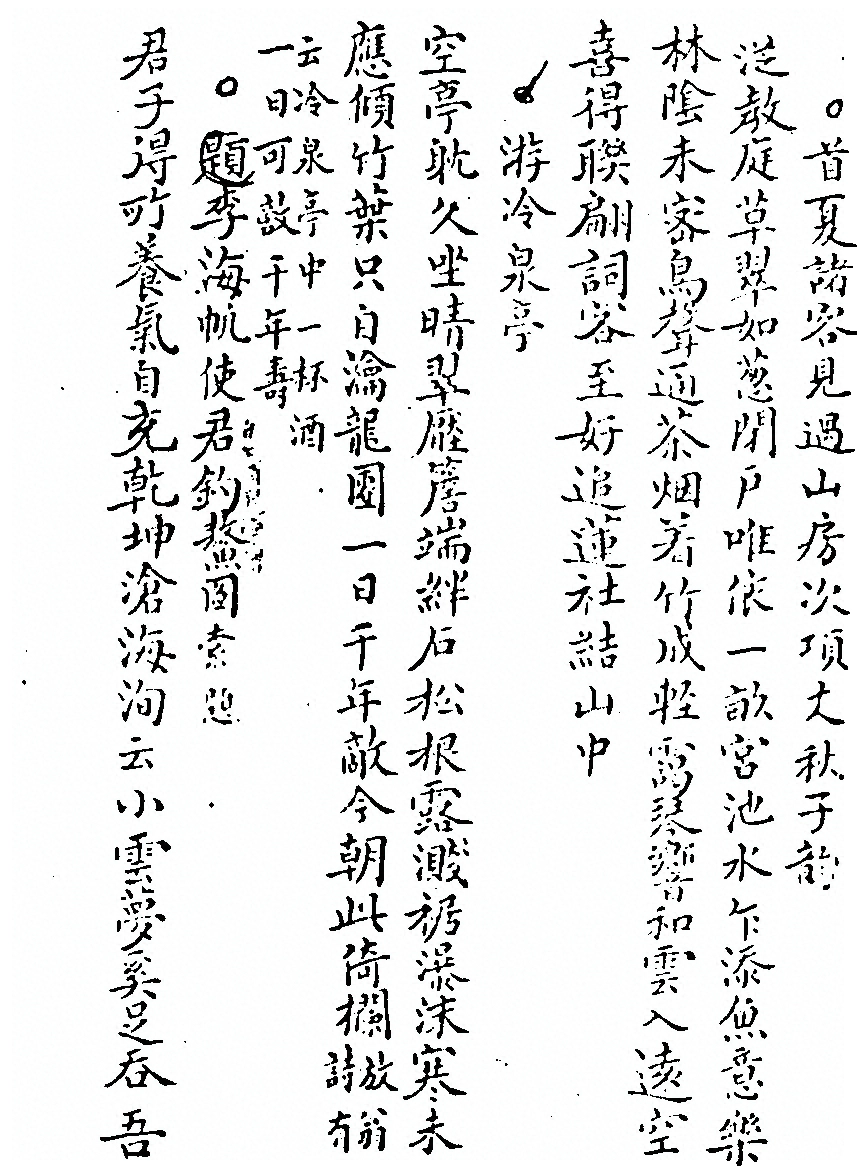 首夏諸客見過山房次項丈秋子韻
從教庭草翠如葱閉戶唯依一畝宮池水乍添魚意樂
林陰未密鳥聲通茶烟著竹成輕靄琴響和雲入遠空
喜得聯翩詞客至好追蓮社結山中
游冷泉亭
空亭耽久坐晴翠壓簷端絆石松根露濺裾瀑沫寒未
應傾竹葉只自瀹龍團一日千年敵今朝此倚欄放翁
詩有
云冷泉亭中一杯酒
一日可敵千年壽
題李海帆使君釣鰲圖索題
君子得所養氣自充乾坤滄海洵云小雲夢奚足吞吾